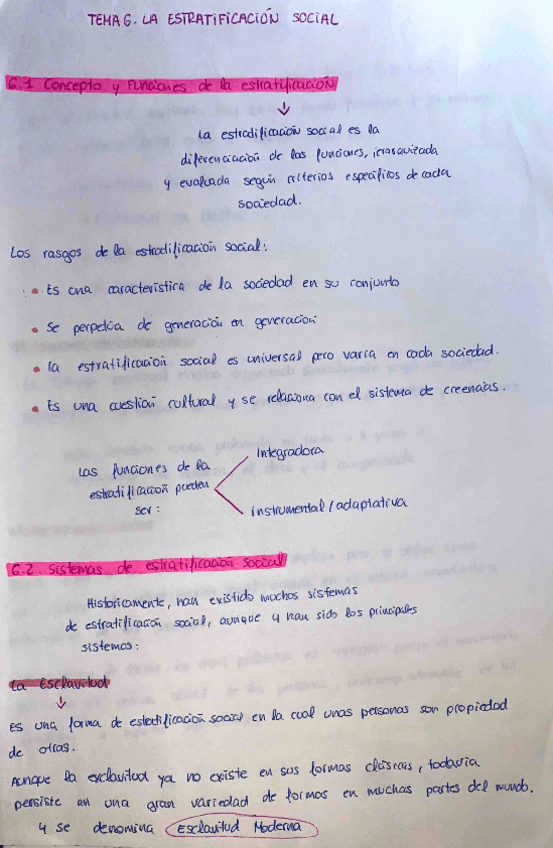 TEMA 6. LA ESTRATIFICACIÓN SOCIAL
6.1 Concepto y funciones de la estratificación
La estradificación social es la
diferenciación de las funciones, jerarquizada
y evaluada según criterios específicos de cada
sociedad.
Los rasgos de la estradificación social:
• Es una característica de la sociedad en su conjunto
• Se perpetúa de generación en generación
• La estratificación social es universal pero varía en cada sociedad.
• Es una cuestión cultural y se relaciona con el sistema de creencias.
Las funciones de la
estratificación pueden
ser:
Integradora
instrumental/adaptativa
6.2 Sistemas de estratificación social
Historicamente, han existido muchos sistemas
de estratificación social, aunque 4 han sido los principales
sistemas:
La Esclavitud
Es una forma de estratificación social en la cual unas personas son propiedad
de otras.
Aunque la esclavitud ya no existe en sus formas clásicas, todavía
persiste en una gran variedad de formas en muchas partes del mundo.
y se denomina Esclavitud Moderna